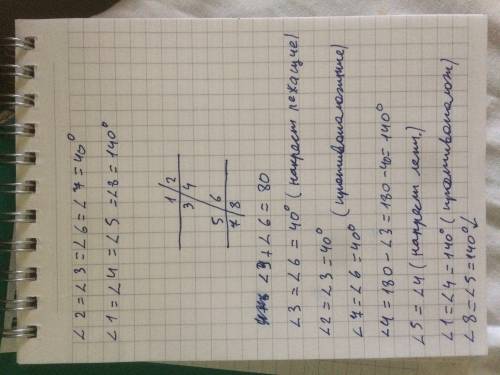 ∠2 = ∠3 = ∠6 = ∠7 = 40°
∠1 = ∠4 = ∠5 = ∠8 = 140°
1 2
3 4
5 6
7 8
∠3 + ∠6 = 80
∠3 = ∠6 = 40° (накрест лежащие)
∠2 = ∠3 = 40°
∠7 = ∠6 = 40° (противоположные)
∠4 = 180 - ∠3 = 180 - 40 = 140°
∠5 = ∠4 (накрест леж.)
∠1 = ∠4 = 140° (противополож)
∠8 = ∠5 = 140°